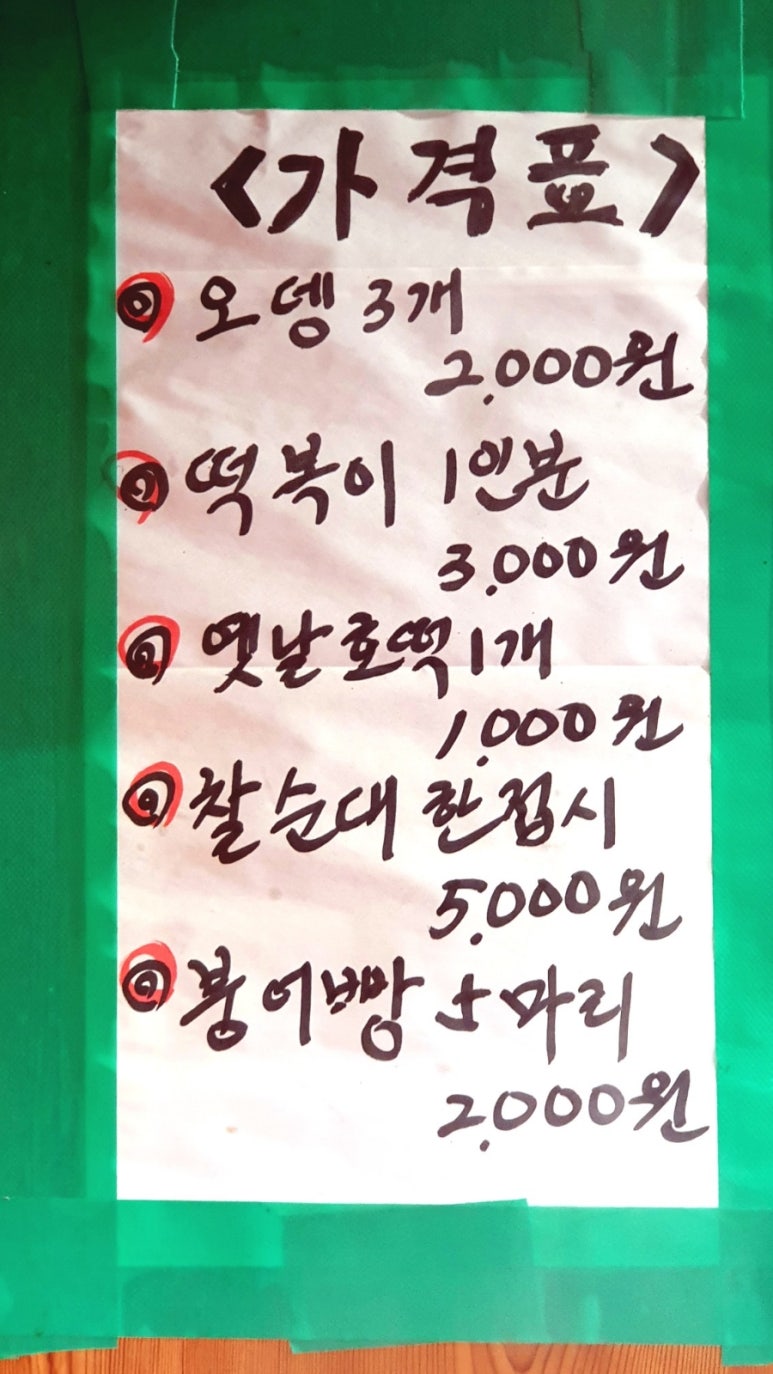 <가격표>
◎ 오뎅 3개
2,000원
◎ 떡볶이 1인분
3,000원
◎ 옛날호떡 1개
1,000원
◎ 찰순대 한접시
5,000원
◎ 붕어빵 5마리
2,000원